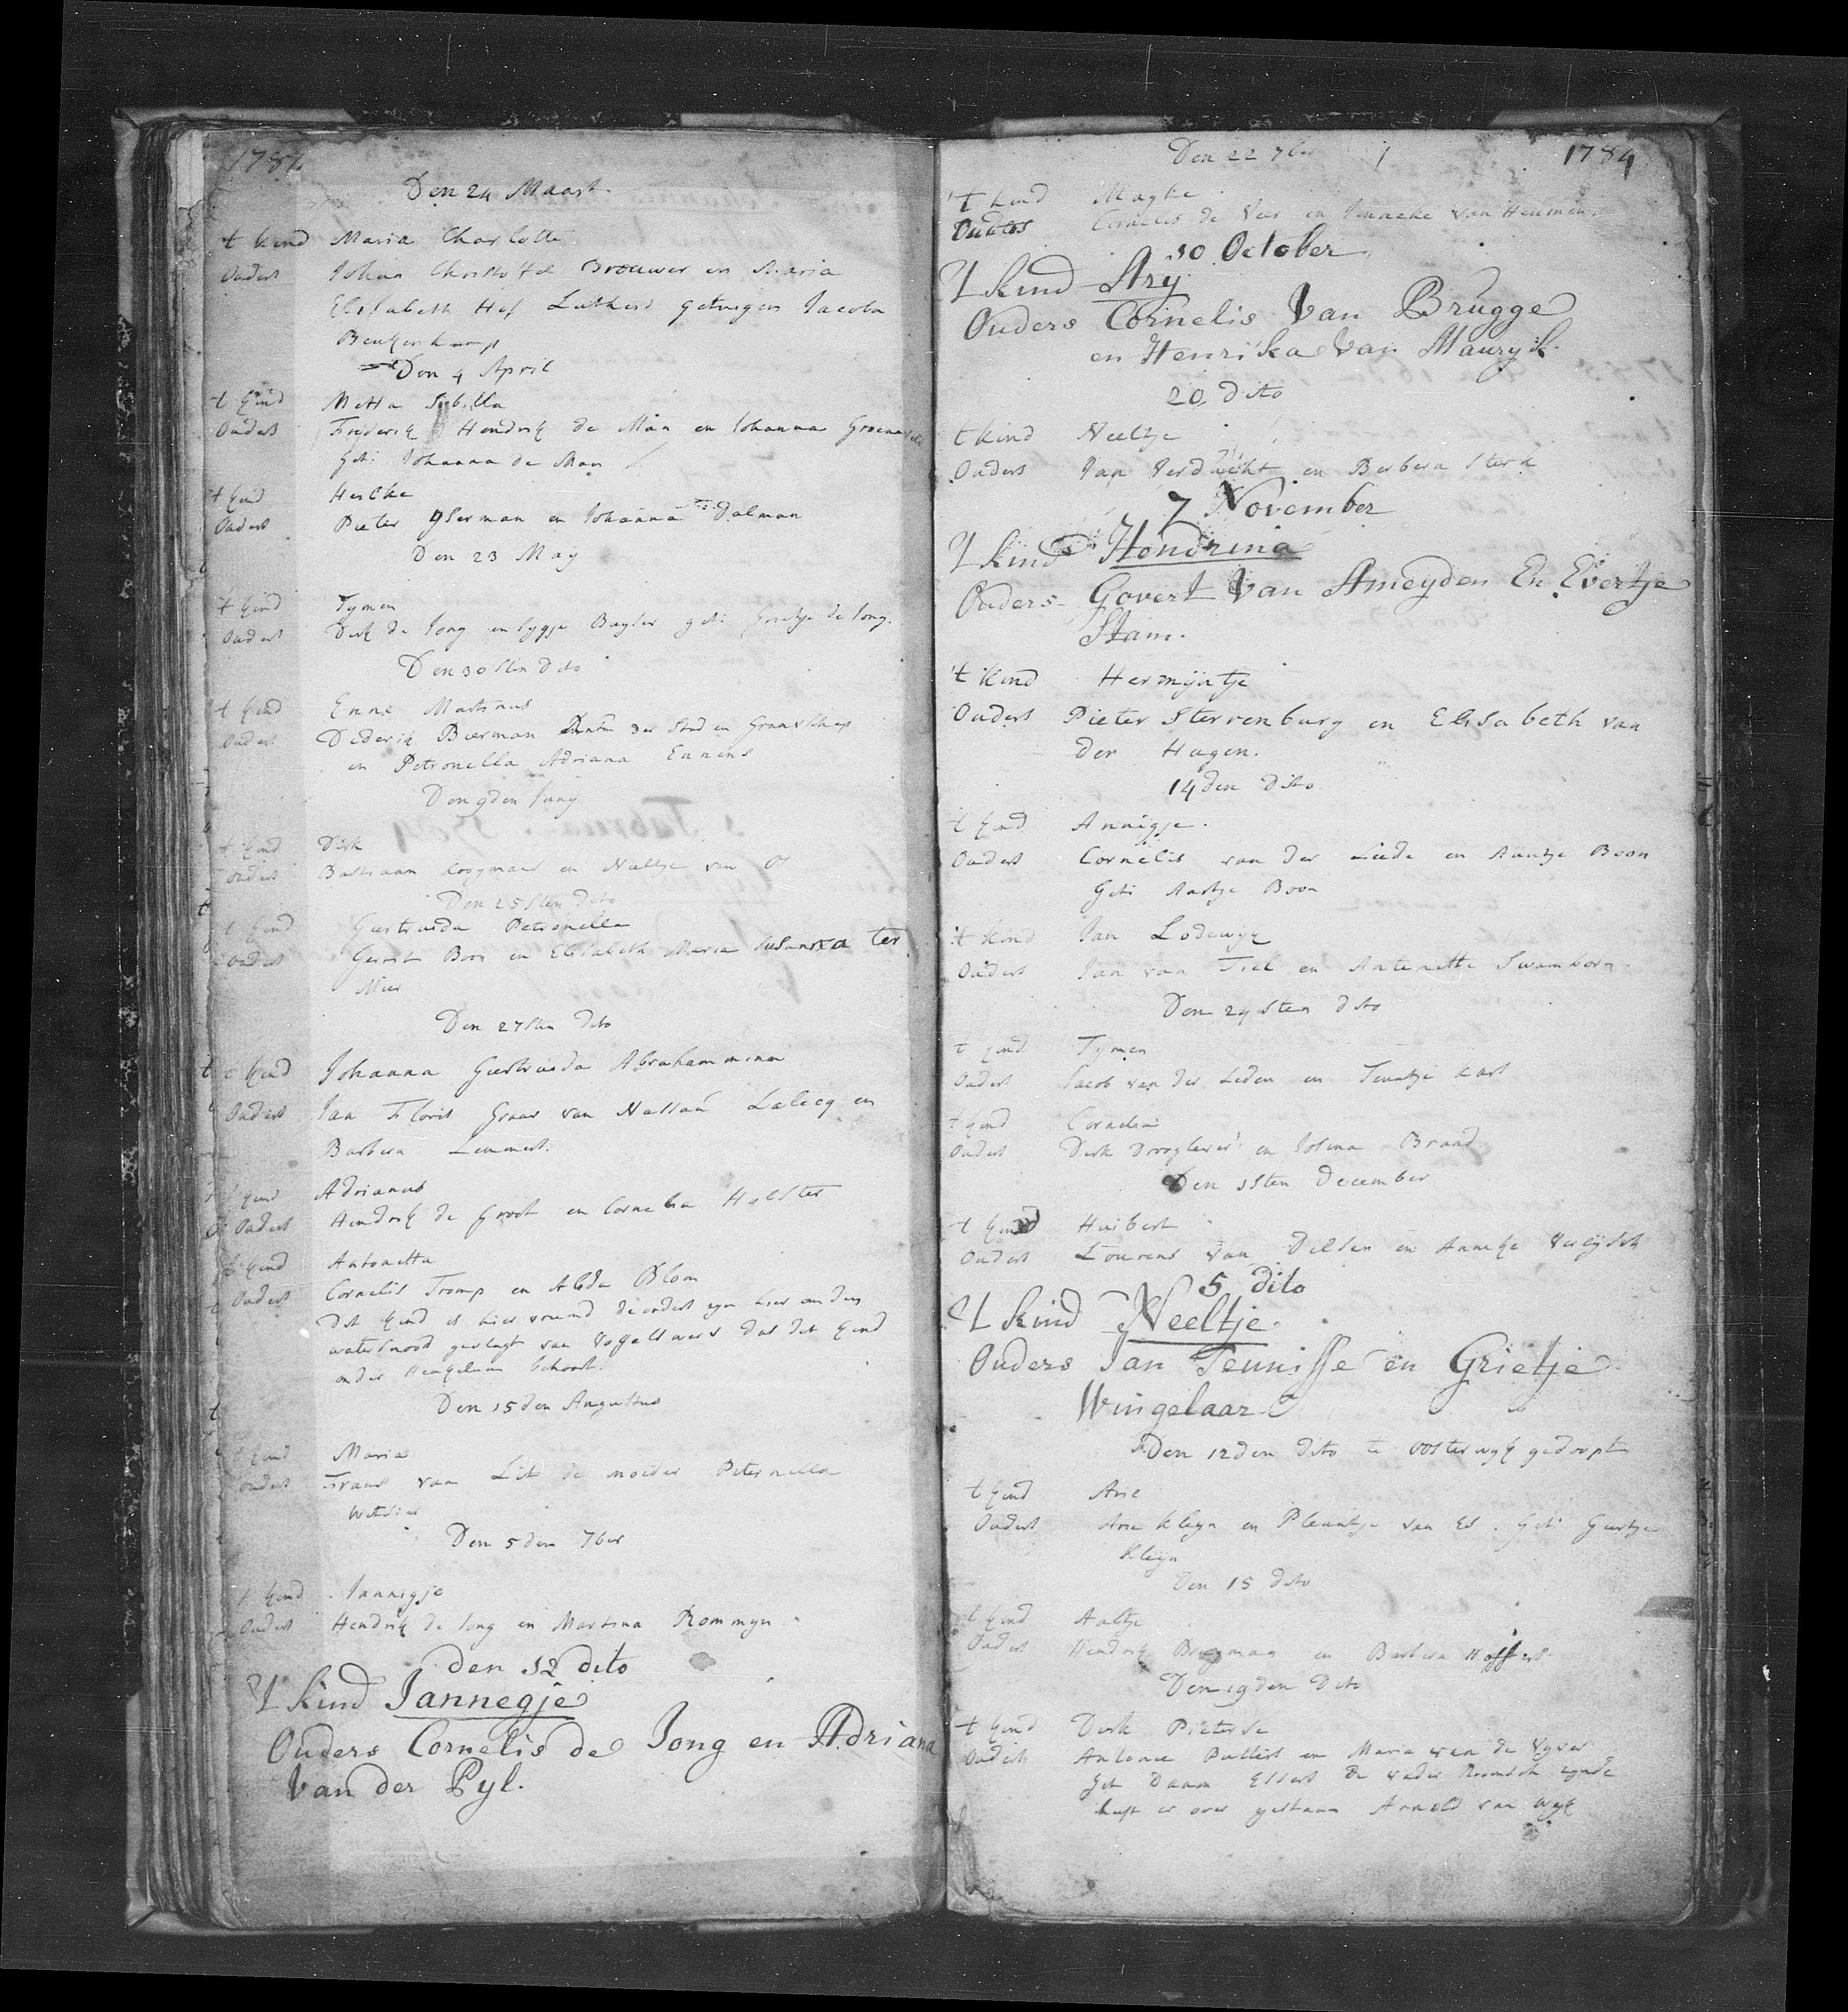 1784
Den 24 Maart
t kind Maria Charlotte
Ouders Johan Christoffel Brouwer en Maria
Elisabeth Hef Luthers getuigen Jacoba
Beukenkamp
Den 4 April
t kind Metta Sibilla
Ouders Frederik Hendrik de Man en Johanna Groeneveld
Get: Johanna de Man
t kind
Ouders Pieter Yserman en Johanna Dalman
Den 23 May
t kind Tymen
Ouders Dirk de Jong en Sygje get: de Jong.
Den 30sten dito
t kind Enne Martinus
Ouders Diderik Bierman der Stad en Graafschap
en Petronella Adriana Ennens
Den 9den Juny
t kind Dirk
Ouders Bastiaan Kooyman en Neeltje van Os
Den 25sten dito
t kind Geertruida Petronella
Ouders Gerrit Boon en Elisabeth Maria Susanna ter
Meer
Den 27sten dito
t kind Johanna Geertruida Abrahammina
Ouders Jan Floris Graav van Nassau Lalecq en
Barbera Lemmert.
t kind Adrianus
Ouders Hendrik de Groot en Cornelia Holster
t kind Antonetta
Ouders Cornelis Tromp en Alida Blom
Dit kind is hier de ouders zyn hier om den
watersnood gevlugt van dat dit kind
onder behoort.
Den 15den Augustus
t kind Maria
Ouders Frans van Lit de moeder Peternella
Den 5den 7ber
t kind Jannigje
Ouders Hendrik de Jong en Martina Rommyn
den 12 dito
't kind Jannegje
Ouders Cornelis de Jong en Adriana
Van der Pyl.
Den 22 7ber 1784
't kind Mayke
Ouders Cornelis de Vos en Jenneke van Heumen
10 October
't kind Ary
Ouders Cornelis Van Brugge
en Henrika Van Mauryk.
20 dito
t kind Neeltje
Ouders Jan Verducht en Berbera Sterk
7 November
't kind Hendrina
Ouders Govert Van Ameyden En Evertje
Stam.
't kind Hermijntje
Ouders Pieter Sterrenburg en Elisabeth van
der Hagen.
14den dito
t kind Annigje.
Ouders Cornelis van der Leede en Aantje Boon
Get: Aartje Boon
't kind Jan Lodewyk
Ouders Jan van Tiel en Antonette Swamborn
Den 24sten dito
t kind Tymen
Ouders Jacob van der Leden en Teuntje
t kind Cornelia
Ouders Dirk Droogleever en Josina Brand
Den 1sten December
t kind Huibert
Ouders Lourens van Dilsen en Anneke
5 dito
't kind Neeltje.
Ouders Jan Teunisse en Grietje
Wingelaar
Den 12den dito te Oosterwyk gedoopt
t kind Arie
Ouders Arie Kleyn en Pleuntje van Es. Get: Geertje
Kleyn
Den 15 dito
t kind Aaltje
Ouders Hendrik Bregman en Barbera
Den 19den dito
t kind Dirk Pieterse
Ouders Antonie en Maria van de Vyver
Get Daam De vader Roomsch zynde
heeft er over gestaan Arnold van Wyk